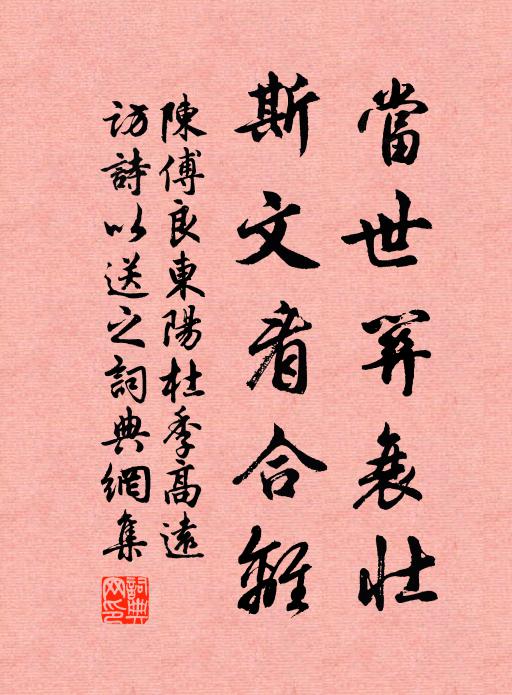 當世算衰壯
斯文看合離
陳傅良東陽杜季高遠
訪詩以送之詞典網集
詞典